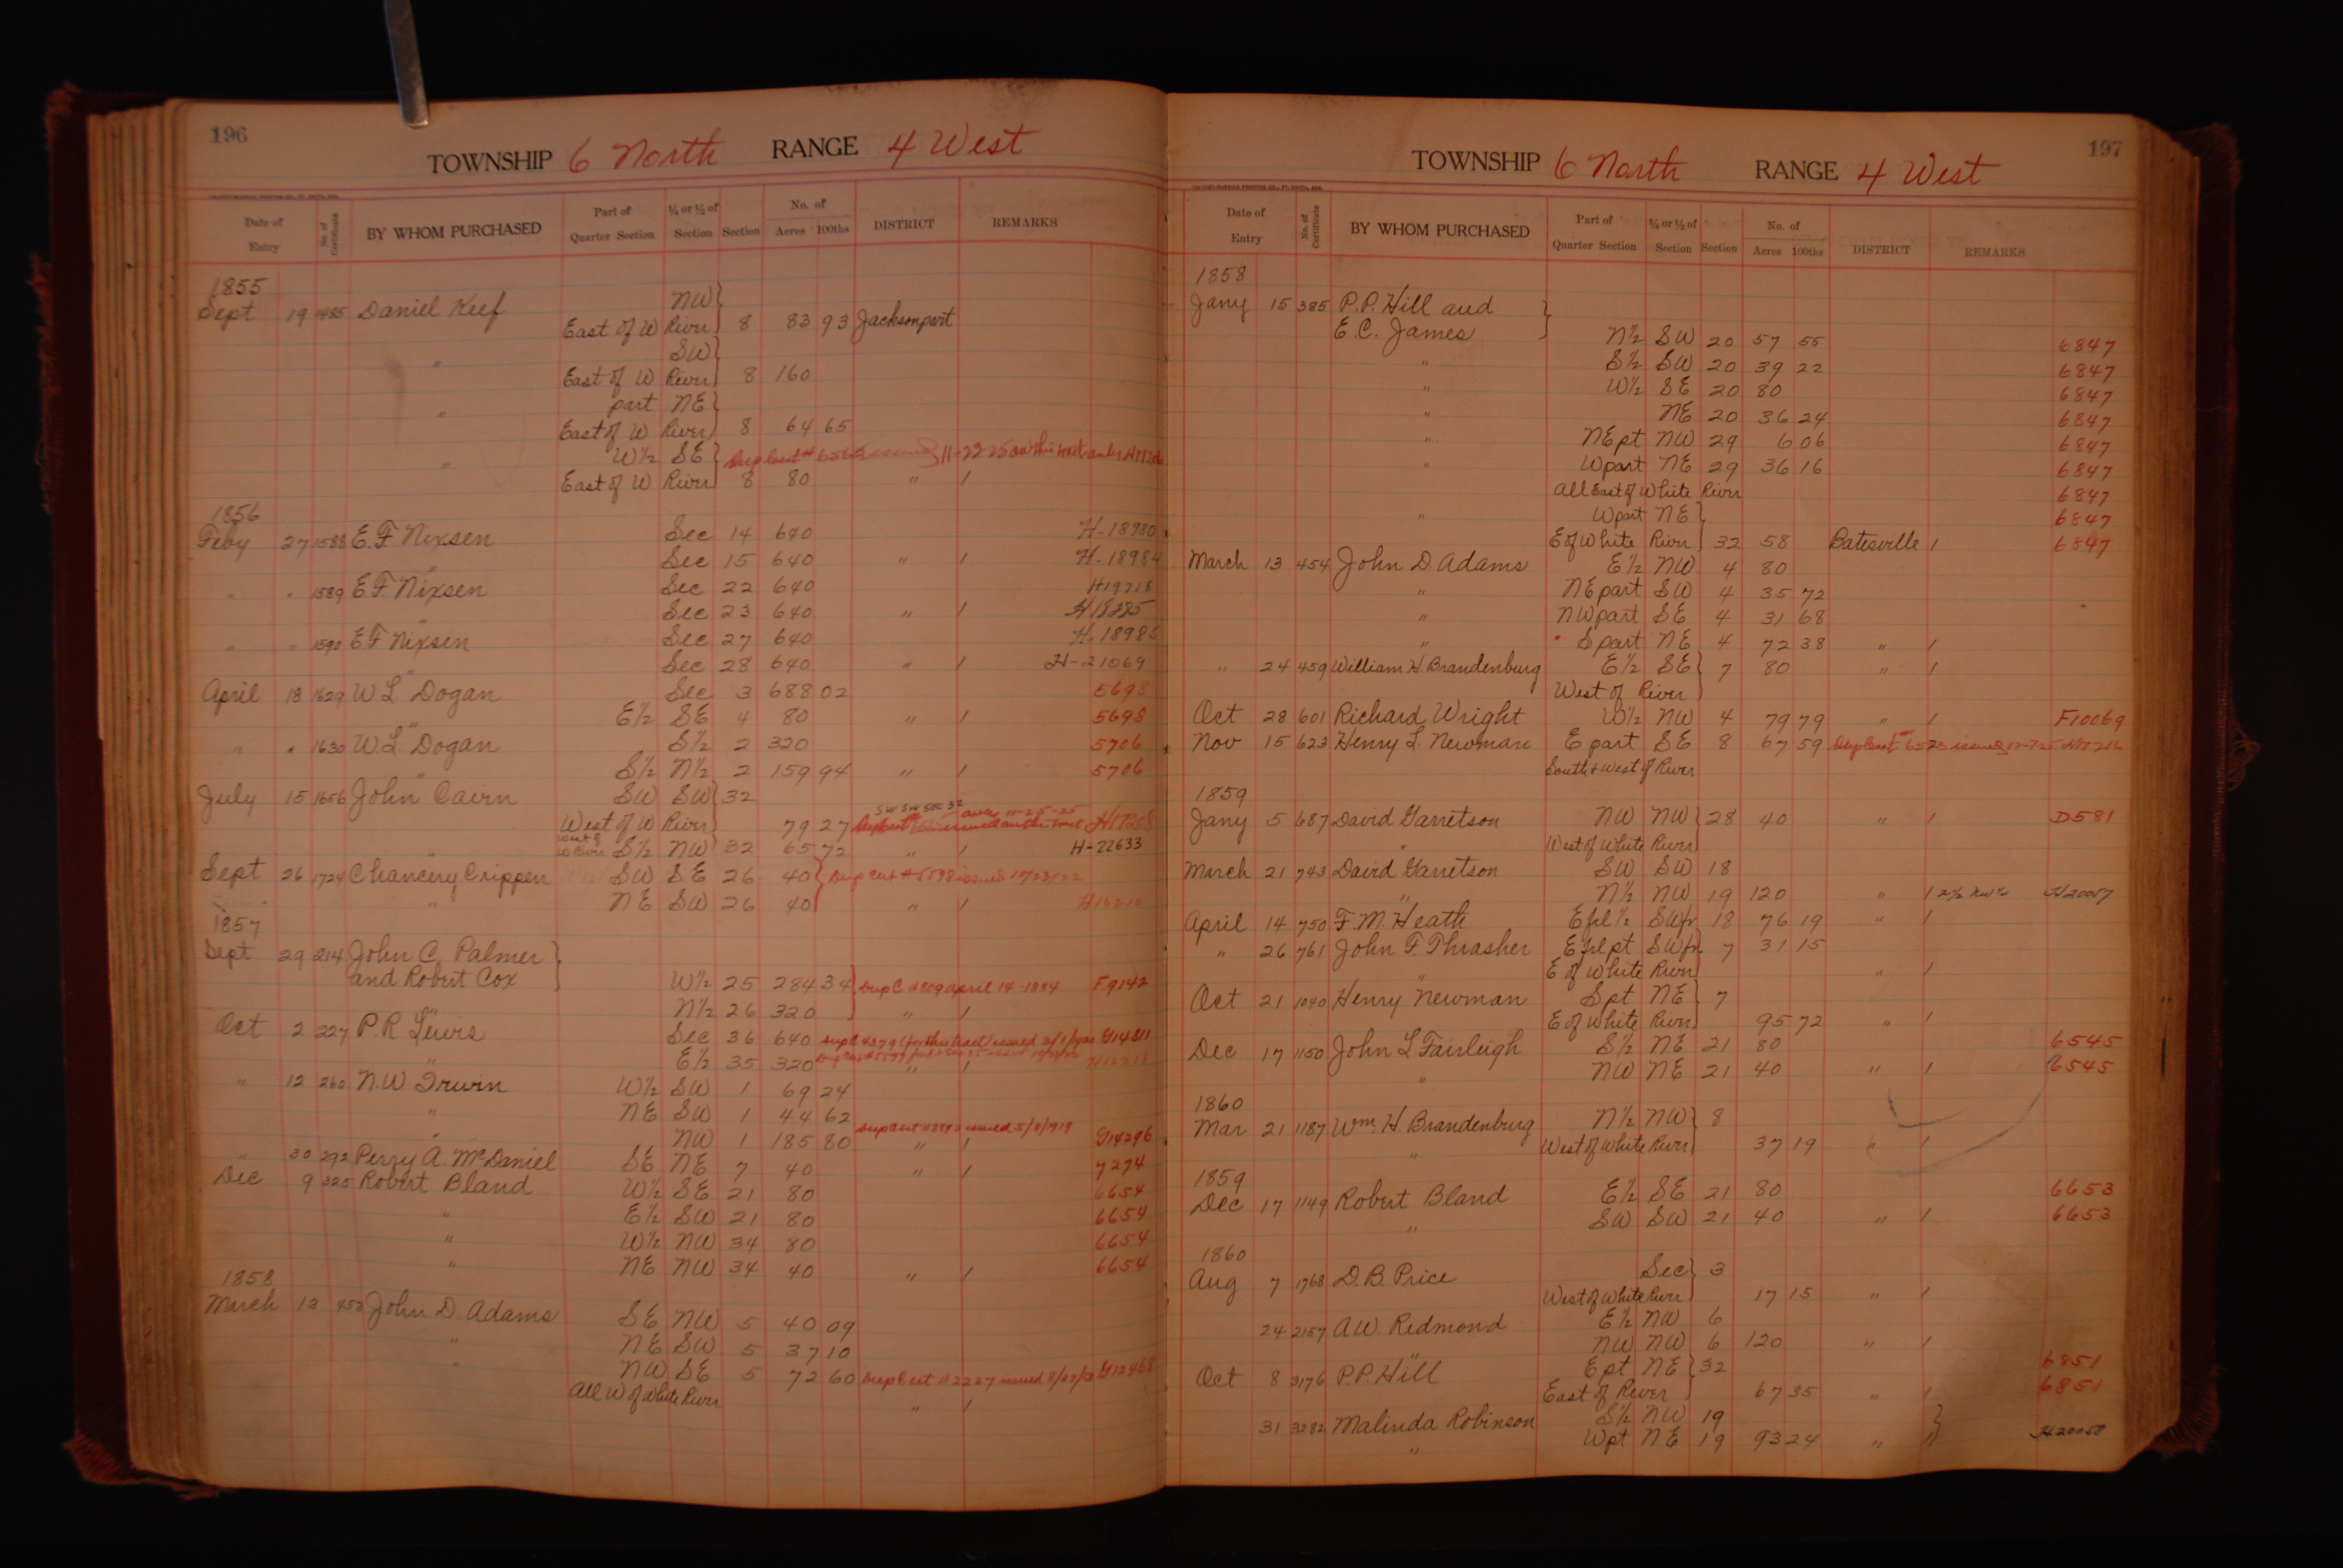 196
TOWNSHIP 6 North RANGE 4 West
Date of Entry No. of Certificate BY WHOM PURCHASED Part of Quarter Section ¼ or ½ of Section Section No. of Acres 100ths DISTRICT REMARKS
1855
Sept 19 1485 Daniel Keef NW
East of W River 8 83 93 Jacksonport
" SW
East of W River 8 160
part NE
" East of W River 8 64 65
W½ SE Dup Cert # issued 11-23-25 on this tract only
" East of W River 8 80 " /
1856
Feby 27 1588 E. F. Nixsen Sec 14 640 H-18980
" Sec 15 640 " / H-18984
" " 1589 E. F. Nixsen Sec 22 640 H19718
" Sec 23 640 " / H18285
" " 1590 E. F. Nixsen Sec 27 640 H-18985
" Sec 28 640 " / H-21069
April 18 1629 W L Dogan Sec 3 688 02 5698
" E½ SE 4 80 " / 5698
" " 1630 W. L. Dogan S½ 2 320 5706
" S½ N½ 2 159 94 " / 5706
July 15 1656 John Cairn SW SW 32
SW SW Sec 32
West of W River 79 27 Dup Cert issued on this tract 11-25-25
West of W River S½ NW 32 65 72 " / H-22633
Sept 26 1724 Chancery Crippen SW SE 26 40 Dup Cert # 5598 issued 10/23/22
" NE SW 26 40 " / H16210
1857
Sept 29 214 John C. Palmer
and Robert Cox W½ 25 284 34 Dup C # 809 April 14-1884 F9142
" N½ 26 320 " /
Oct 2 227 P. R. Lewis Sec 36 640 Dup C 4379 (for this tract) issued G14811
" E½ 35 320 " / H16211
" 12 260 N. W. Irwin W½ SW 1 69 24
" NE SW 1 44 62
" NW 1 185 80 Dup Cert issued 5/8/1919 " / G14296
" 30 292 Perry A. McDaniel SE NE 7 40 " / 7274
Dec 9 325 Robert Bland W½ SE 21 80 6654
" E½ SW 21 80 6654
" W½ NW 34 80 6654
" NE NW 34 40 " / 6654
1858
March 13 453 John D. Adams SE NW 5 40 09
" NE SW 5 37 10
" NW SE 5 72 60 Dup Cert # 2227 issued G12468
All W of White River " /
197
TOWNSHIP 6 North RANGE 4 West
Date of Entry No. of Certificate BY WHOM PURCHASED Part of Quarter Section ¼ or ½ of Section Section No. of Acres 100ths DISTRICT REMARKS
1858
Jany 15 385 P. P. Hill and
E. C. James N½ SW 20 57 55 6847
" S½ SW 20 39 22 6847
" W½ SE 20 80 6847
" NE 20 36 24 6847
" NE pt NW 29 6 06 6847
" W part NE 29 36 16 6847
All East of White River 6847
" W part NE 6847
E of White River 32 58 Batesville / 6847
March 13 454 John D. Adams E½ NW 4 80
" NE part SW 4 35 72
" NW part SE 4 31 68
" S part NE 4 72 38 " /
" 24 459 William H Brandenburg E½ SE 7 80 " /
West of River
Oct 28 601 Richard Wright W½ NW 4 79 79 " / F10069
Nov 15 623 Henry L. Newman E part SE 8 67 59 Dup Cert # issued
South & West of River
1859
Jany 5 687 David Garretson NW NW 28 40 " / D581
West of White River
March 21 743 David Garretson SW SW 18
" N½ NW 19 120 " / H20057
April 14 750 F. M. Heath E frl ½ SW fr 18 76 19 " /
" 26 761 John F. Thrasher E frl pt SW fr 7 31 15
E of White River " /
Oct 21 1040 Henry Newman S pt NE 7
E of White River 95 72 " /
Dec 17 1150 John L Fairleigh S½ NE 21 80 6545
" NW NE 21 40 " / 6545
1860
Mar 21 1187 Wm H. Brandenburg N½ NW 8
" West of White River 37 19 " /
1859
Dec 17 1149 Robert Bland E½ SE 21 80 6653
" SW SW 21 40 " / 6653
1860
Aug 7 1768 D. B. Price Sec 3
West of White River 17 15 " /
24 2157 A W. Redmond E½ NW 6
" NW NW 6 120 " /
Oct 8 3176 P. P. Hill E pt NE 32 6851
East of River 67 35 " / 6851
31 3282 Malinda Robinson S½ NW 19
" W pt NE 19 93 24 " " H20058